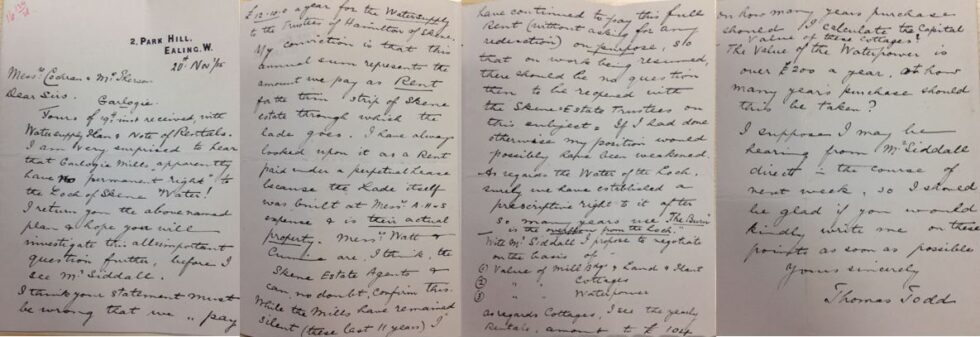 2, PARK HILL,
EALING. W.
20th Nov/15
Messrs Cochran & McPherson
Dear Sirs. Garlogie.
Yours of 19th inst received, with
Water supply Plan & Note of Rentals.
I am very surprised to hear
that Garlogie Mills, apparently
have no permanent "right" to
the Loch of Skene Water!
I return you the above named
plan & hope you will
investigate this all important
question further, before I
see Mr Siddall.
I think your statement must
be wrong that we "pay
£12.10.0 a year for the Water supply
to the Trustees of Hamilton of Skene.
My conviction is that this
annual sum represents the
amount we pay as Rent
for the thin strip of Skene
estate through which the
lade goes. I have always
looked upon it as a Rent
paid under a perpetual lease
because the Lade itself
was built at Messrs A.H.&S
expense & is their actual
property. Messrs Watt &
Cumine are, I think, the
Skene Estate Agents &
can, no doubt, confirm this.
While the Mills have remained
silent (these last 11 years) I
have continued to pay this full
Rent (without asking for any
reduction) on purpose, so
that on work being resumed,
there should be no question
then to be reopened with
the Skene Estate Trustees on
this subject. If I had done
otherwise my position would
possibly have been weakened.
As regards the Water of the Loch.
surely we have established a
prescriptive right to it after
so many years use. "The Burn
is the overflow from the Loch."
With Mr Siddall I propose to negotiate
on the basis of
① Value of Mill Bldgs & Land & Plant
② " " Cottages
③ " " Waterpower
as regards Cottages, I see the yearly
Rentals, amount to £104
on how many years purchase
should I calculate the Capital
Value of these cottages?
The Value of the Waterpower is
over £200 a year. At how
many years purchase should
this be taken?
I suppose I may be
hearing from Mr Siddall
direct in the course of
next week, so I should
be glad if you would
kindly write me on these
points as soon as possible
Yours sincerely
Thomas Todd